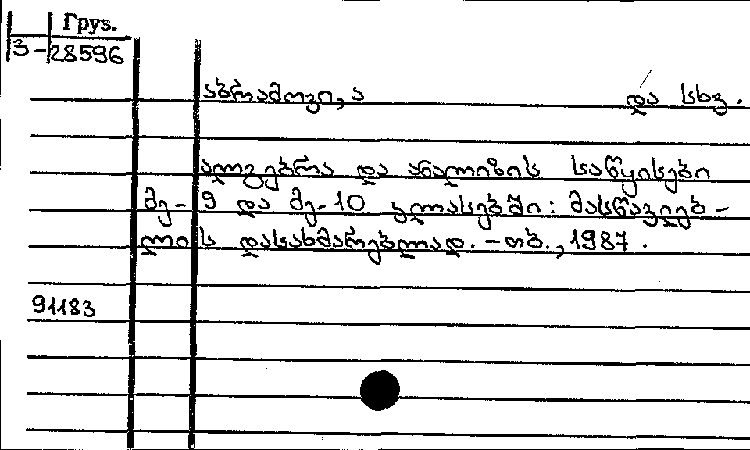 Груз.
3-28596
აბრამოვი, ა და სხვ.
ალგებრა და ანალიზის საწყისები
მე-9 და მე-10 კლასებში: მასწავლებ-
ლის დასახმარებლად. - თბ., 1987.
91183